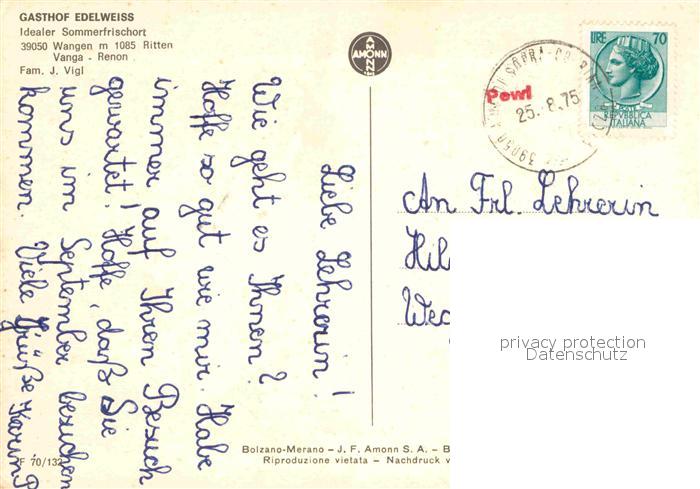 GASTHOF EDELWEISS
Idealer Sommerfrischort
39050 Wangen m 1085 Ritten
Vanga - Renon
Fam. J. Vigl
AMONN
LIRE 70
REPVBBLICA
ITALIANA
Pewl
25.8.75
Liebe Lehrerin!
Wie geht es Ihnen?
Hoffe so gut wie mir. Habe
immer auf Ihren Besuch
gewartet! Hoffe, daß Sie
uns im September besuchen
kommen. Viele Grüße Karin P
An Frl. Lehrerin
Hil
Wec
privacy protection
Datenschutz
Bolzano-Merano – J. F. Amonn S. A. – B
Riproduzione vietata – Nachdruck v
F 70/132